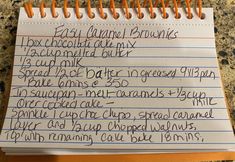 Easy Caramel Brownies
1 box chocolate cake mix
1/2 cup melted butter
1/3 cup milk
Spread 1/2 of batter in greased 9x13 pan
Bake 6 mins @ 350
In saucepan - melt caramels + 1/3 cup milk
over cooked cake -
Sprinkle 1 cup choc chips, spread caramel
layer and 1/2 cup chopped walnuts.
Top with remaining cake bake 18 mins.